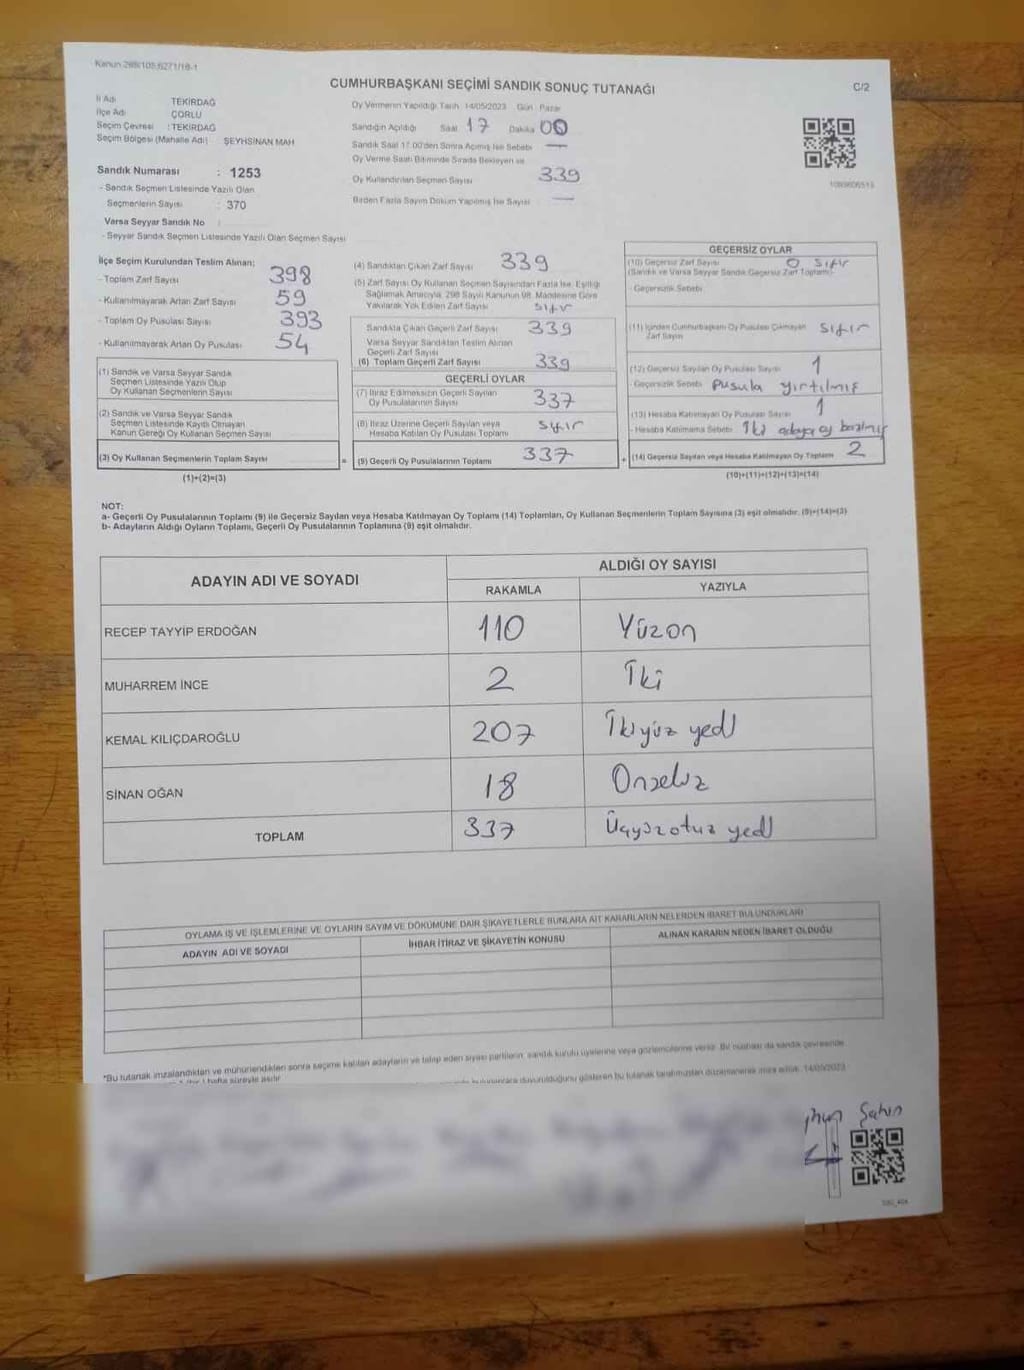 Kanun 298/105,6271/18-1
CUMHURBAŞKANI SEÇİMİ SANDIK SONUÇ TUTANAĞI
C/2
İl Adı TEKİRDAĞ
İlçe Adı ÇORLU
Seçim Çevresi : TEKİRDAĞ
Seçim Bölgesi (Mahalle Adı) ŞEYHSİNAN MAH
Sandık Numarası : 1253
- Sandık Seçmen Listesinde Yazılı Olan
Seçmenlerin Sayısı : 370
Varsa Seyyar Sandık No :
- Seyyar Sandık Seçmen Listesinde Yazılı Olan Seçmen Sayısı
Oy Vermenin Yapıldığı Tarih 14/05/2023 Gün Pazar
Sandığın Açıldığı Saat 17 Dakika 00
Sandık Saat 17.00'den Sonra Açılmış İse Sebebi —
Oy Verme Saati Bitiminde Sırada Bekleyen ve
Oy Kullandırılan Seçmen Sayısı 339
Birden Fazla Sayım Döküm Yapılmış İse Sayısı —
İlçe Seçim Kurulundan Teslim Alınan;
- Toplam Zarf Sayısı 398
- Kullanılmayarak Artan Zarf Sayısı 59
- Toplam Oy Pusulası Sayısı 393
- Kullanılmayarak Artan Oy Pusulası 54
(1) Sandık ve Varsa Seyyar Sandık
Seçmen Listesinde Yazılı Olup
Oy Kullanan Seçmenlerin Sayısı
(2) Sandık ve Varsa Seyyar Sandık
Seçmen Listesinde Kayıtlı Olmayan
Kanun Gereği Oy Kullanan Seçmen Sayısı
(3) Oy Kullanan Seçmenlerin Toplam Sayısı
(1)+(2)=(3)
(4) Sandıktan Çıkan Zarf Sayısı 339
(5) Zarf Sayısı Oy Kullanan Seçmen Sayısından Fazla İse, Eşitliği
Sağlamak Amacıyla, 298 Sayılı Kanunun 98. Maddesine Göre
Yakılarak Yok Edilen Zarf Sayısı sıfır
Sandıkta Çıkan Geçerli Zarf Sayısı 339
Varsa Seyyar Sandıktan Teslim Alınan
Geçerli Zarf Sayısı
(6) Toplam Geçerli Zarf Sayısı 339
GEÇERLİ OYLAR
(7) İtiraz Edilmeksizin Geçerli Sayılan
Oy Pusulalarının Sayısı 337
(8) İtiraz Üzerine Geçerli Sayılan veya
Hesaba Katılan Oy Pusulası Toplamı sıfır
= (9) Geçerli Oy Pusulalarının Toplamı 337 +
GEÇERSİZ OYLAR
(10) Geçersiz Zarf Sayısı 0 sıfır
(Sandık ve Varsa Seyyar Sandık Geçersiz Zarf Toplamı)
- Geçersizlik Sebebi
(11) İçinden Cumhurbaşkanı Oy Pusulası Çıkmayan sıfır
Zarf Sayısı
(12) Geçersiz Sayılan Oy Pusulası Sayısı 1
- Geçersizlik Sebebi Pusula yırtılmış
(13) Hesaba Katılmayan Oy Pusulası Sayısı 1
- Hesaba Katılmama Sebebi İki adaya oy basılmış
(14) Geçersiz Sayılan veya Hesaba Katılmayan Oy Toplamı 2
(10)+(11)+(12)+(13)=(14)
NOT:
a- Geçerli Oy Pusulalarının Toplamı (9) ile Geçersiz Sayılan veya Hesaba Katılmayan Oy Toplamı (14) Toplamları, Oy Kullanan Seçmenlerin Toplam Sayısına (3) eşit olmalıdır. (9)+(14)=(3)
b- Adayların Aldığı Oyların Toplamı, Geçerli Oy Pusulalarının Toplamına (9) eşit olmalıdır.
ADAYIN ADI VE SOYADI
ALDIĞI OY SAYISI
RAKAMLA YAZIYLA
RECEP TAYYİP ERDOĞAN 110 Yüzon
MUHARREM İNCE 2 İki
KEMAL KILIÇDAROĞLU 207 İkiyüz yedi
SİNAN OĞAN 18 Onsekiz
TOPLAM 337 Üçyüzotuz yedi
OYLAMA İŞ VE İŞLEMLERİNE VE OYLARIN SAYIM VE DÖKÜMÜNE DAİR ŞİKAYETLERLE BUNLARA AİT KARARLARIN NELERDEN İBARET BULUNDUKLARI
ADAYIN ADI VE SOYADI İHBAR İTİRAZ VE ŞİKAYETİN KONUSU ALINAN KARARIN NEDEN İBARET OLDUĞU
*Bu tutanak imzalandıktan ve mühürlendikten sonra seçime katılan adayların ve talep eden siyasi partilerin, sandık kurulu üyelerine veya gözlemcilerine verilir. Bir nüshası da sandık çevresinde
duyurulduğunu gösteren bu tutanak tarafımızdan düzenlenerek imza edildi. 14/05/2023
Şahin